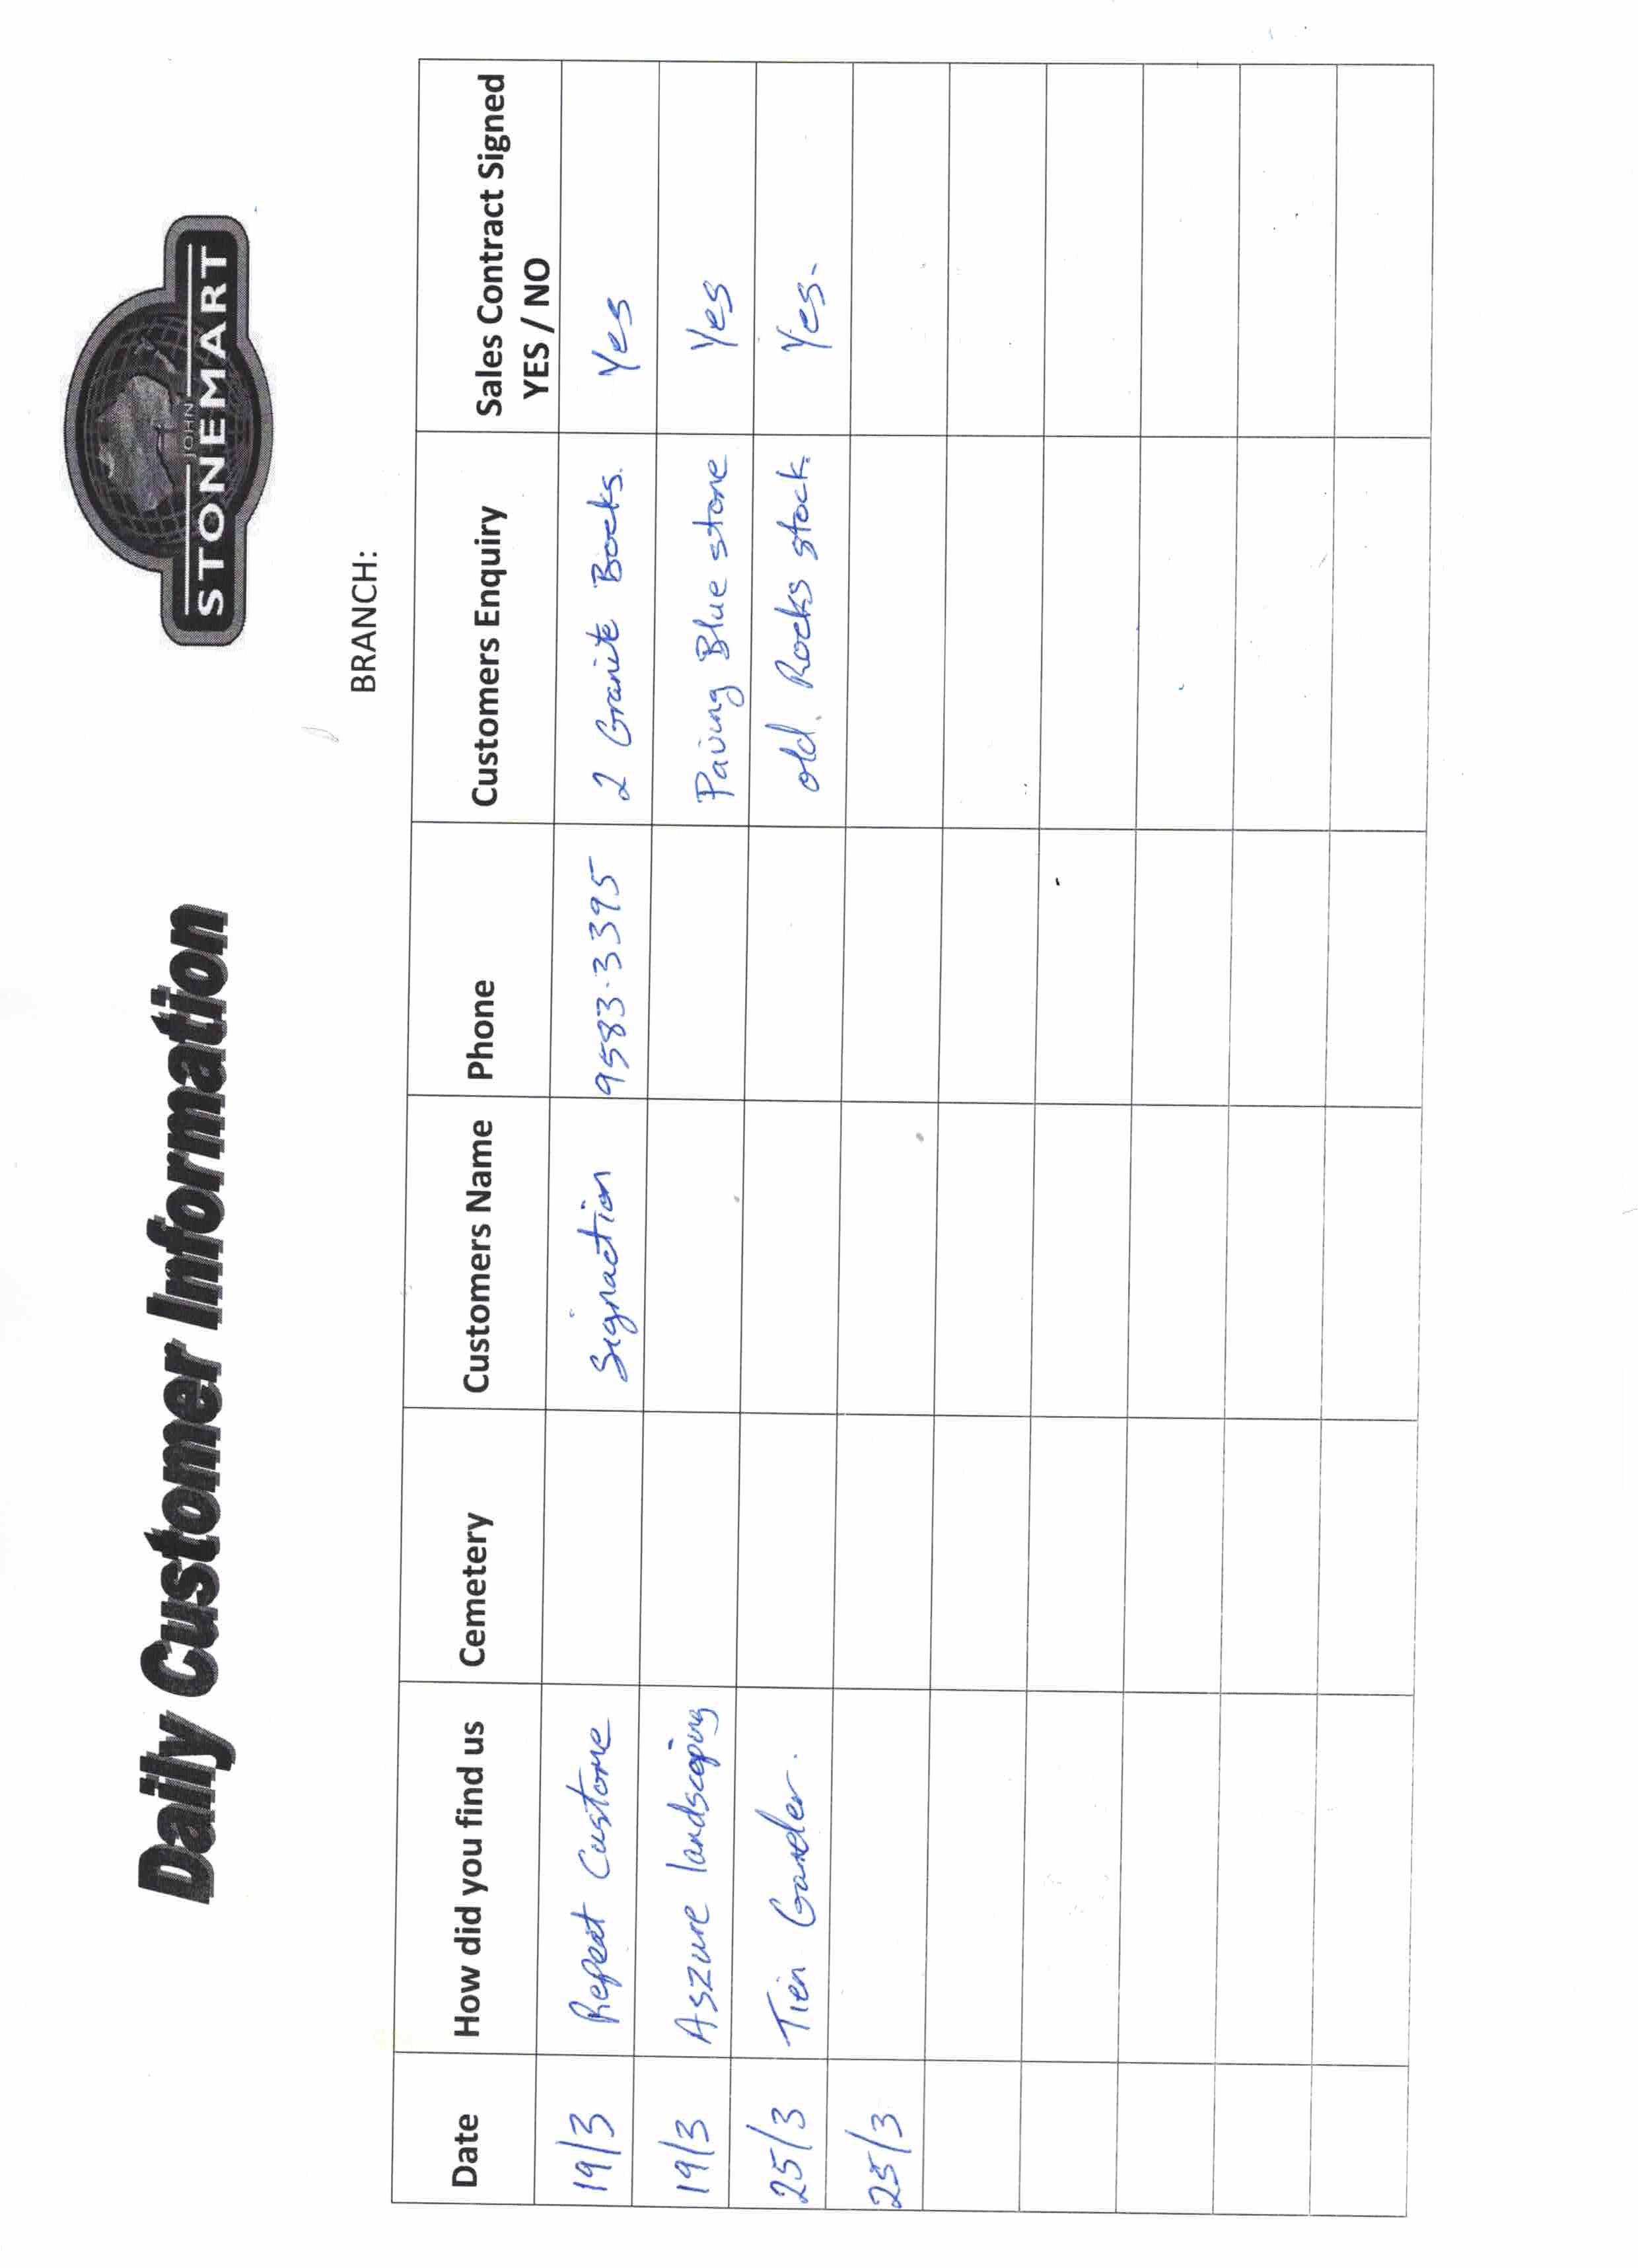 Daily Customer Information
JOHN
STONEMART
BRANCH:
Date How did you find us Cemetery Customers Name Phone Customers Enquiry Sales Contract Signed
YES / NO
19/3 Repeat Custome Signaction 9583-3395 2 Granite Bocks. Yes
19/3 Aszure landscaping Paving Blue stone Yes
25/3 Tien Garden. old. Rocks stock. Yes-
25/3